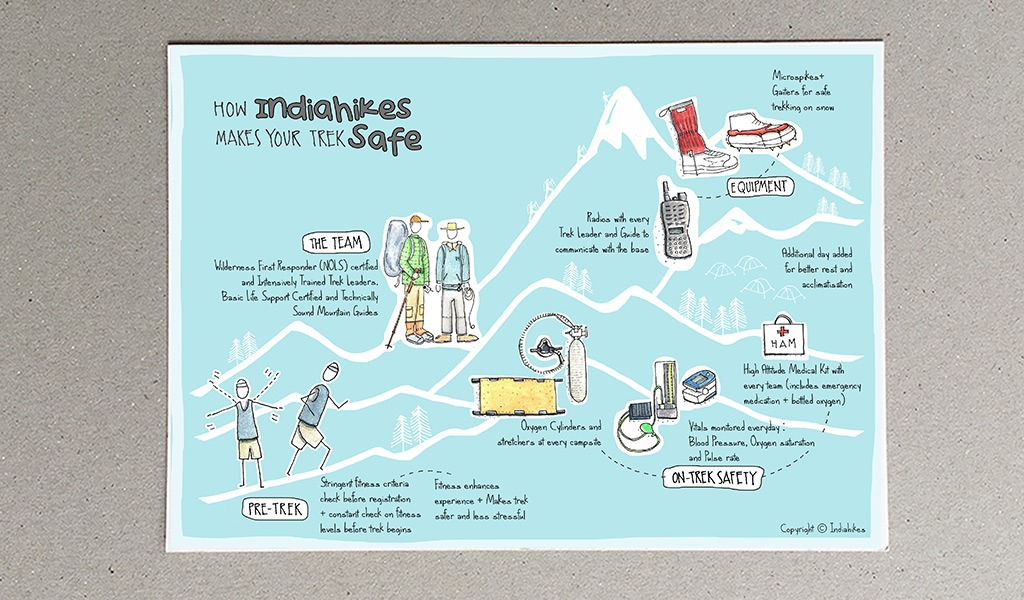 How Indiahikes
MAKES YOUR TREK Safe
Microspikes+
Gaiters for safe
trekking on snow
EQUIPMENT
Radios with every
Trek Leader and Guide to
communicate with the base
THE TEAM
Wilderness First Responder (NOLS) certified
and Intensively Trained Trek Leaders.
Basic Life Support Certified and Technically
Sound Mountain Guides
Additional day added
for better rest and
acclimatisation
HAM
High Altitude Medical Kit with
every team (includes emergency
medication + bottled oxygen)
Oxygen Cylinders and
stretchers at every campsite
Vitals monitored everyday :
Blood Pressure, Oxygen saturation
and Pulse rate
ON-TREK SAFETY
PRE-TREK
Stringent fitness criteria
check before registration
+ constant check on fitness
levels before trek begins
Fitness enhances
experience + Makes trek
safer and less stressful
Copyright © Indiahikes